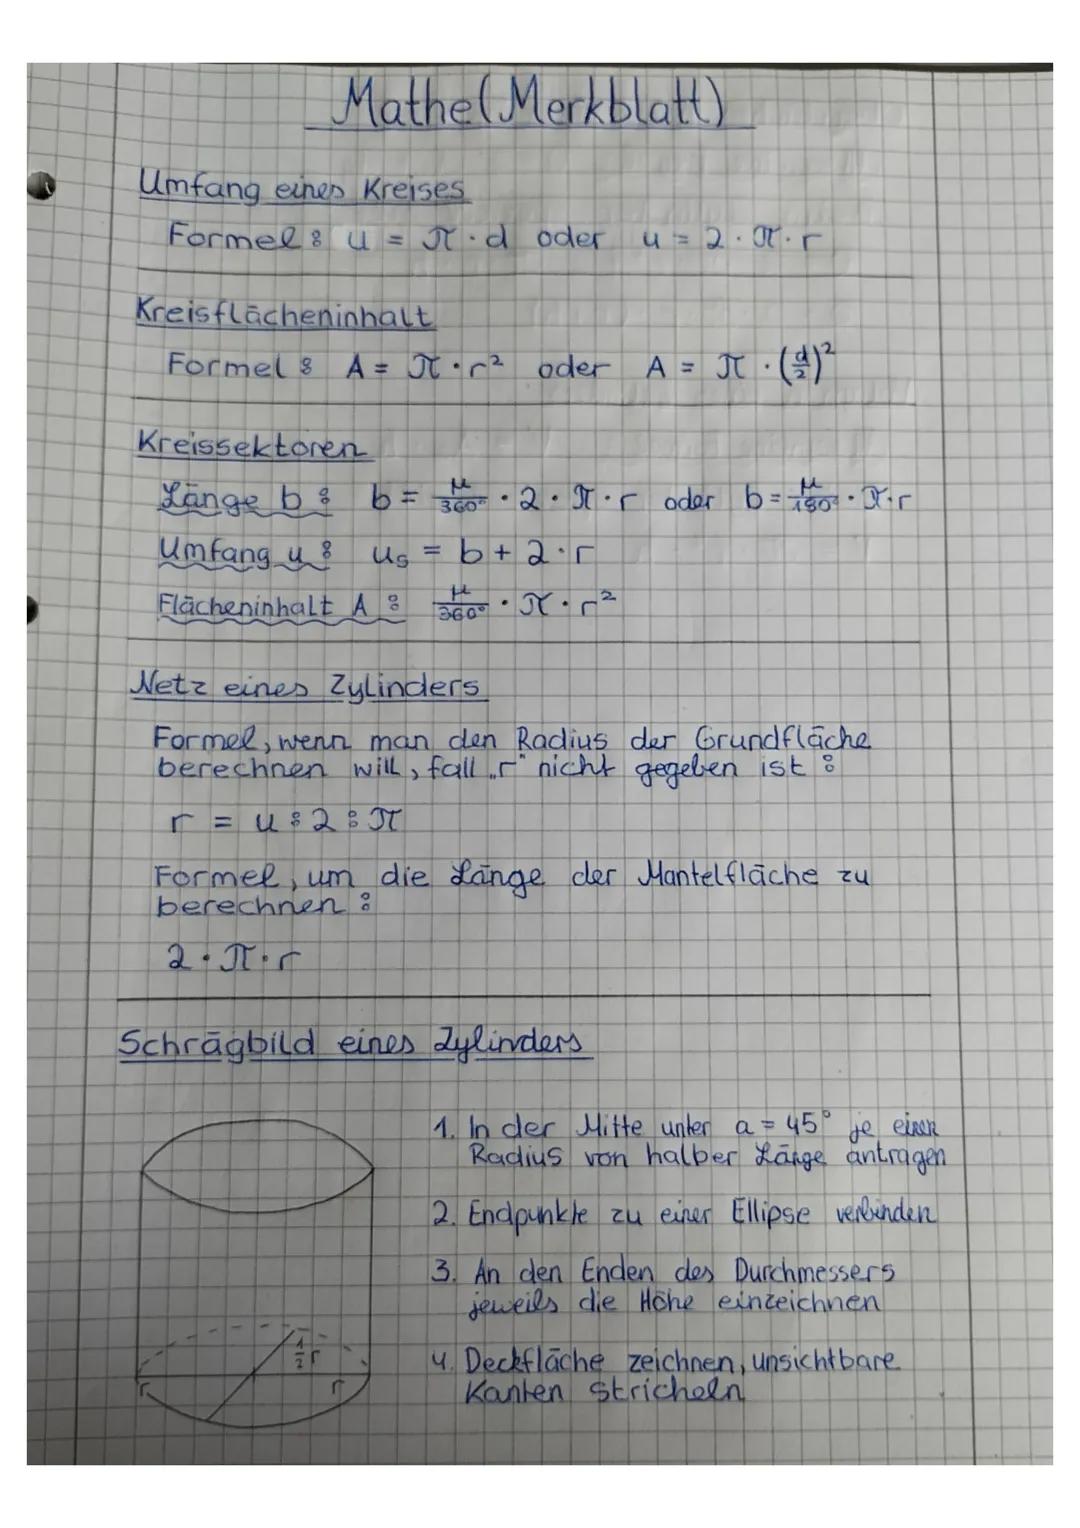 Mathe (Merkblatt)
Umfang eines Kreises
Formel: u = π · d oder u = 2 · π · r
Kreisflächeninhalt
Formel: A = π · r² oder A = π · (d/2)²
Kreissektoren
Länge b: b = μ/360° · 2 · π · r oder b = μ/180° · π · r
Umfang u: us = b + 2 · r
Flächeninhalt A: μ/360° · π · r²
Netz eines Zylinders
Formel, wenn man den Radius der Grundfläche
berechnen will, fall „r" nicht gegeben ist:
r = u : 2 : π
Formel, um die Länge der Mantelfläche zu
berechnen:
2 · π · r
Schrägbild eines Zylinders
1. In der Mitte unter a = 45° je einen
Radius von halber Länge antragen
2. Endpunkte zu einer Ellipse verbinden
3. An den Enden des Durchmessers
jeweils die Höhe einzeichnen
4. Deckfläche zeichnen, unsichtbare
Kanten stricheln
1/2 r
r
r